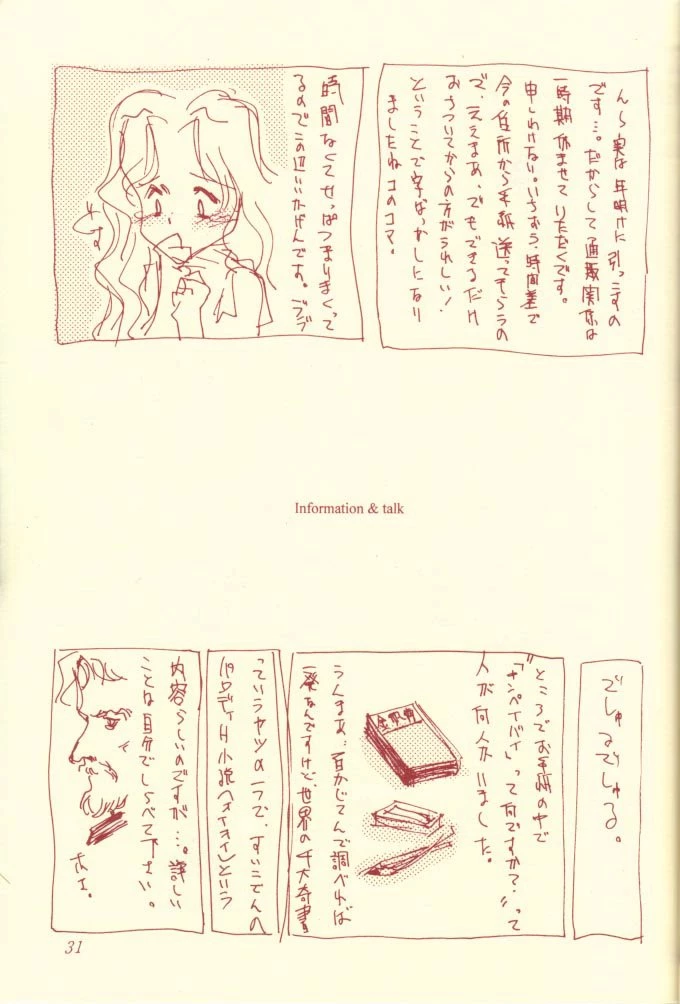 んら実は年明けに引っこすの
です…。だからして通販関係は
一時期休ませていただくです。
申しわけない。いちおう、時間差で
今の住所から手紙送ってもらうの
で、ええまあ、でもできるだけ
おちついてからの方がうれしい!
ということで字ばっかしになり
ましたねコのコマ。
時間なくてせっぱつまりまくって
るのでこの辺いいかげんです。ブツブツ
Information & talk
でしゅるでしゅる。
ところでお手紙の中で
「"キンペイバイ"って何ですか?」って
人が何人かいました。
うんまあ…百かじてんで調べれば
一発なんですけど、世界の4大奇書
っていうヤツの一つで、すいこでんの
パロディH小説(ヘイヘイヘイ)という
内容らしいのですが…。詳しい
ことは自分でしらべて下さい。
31